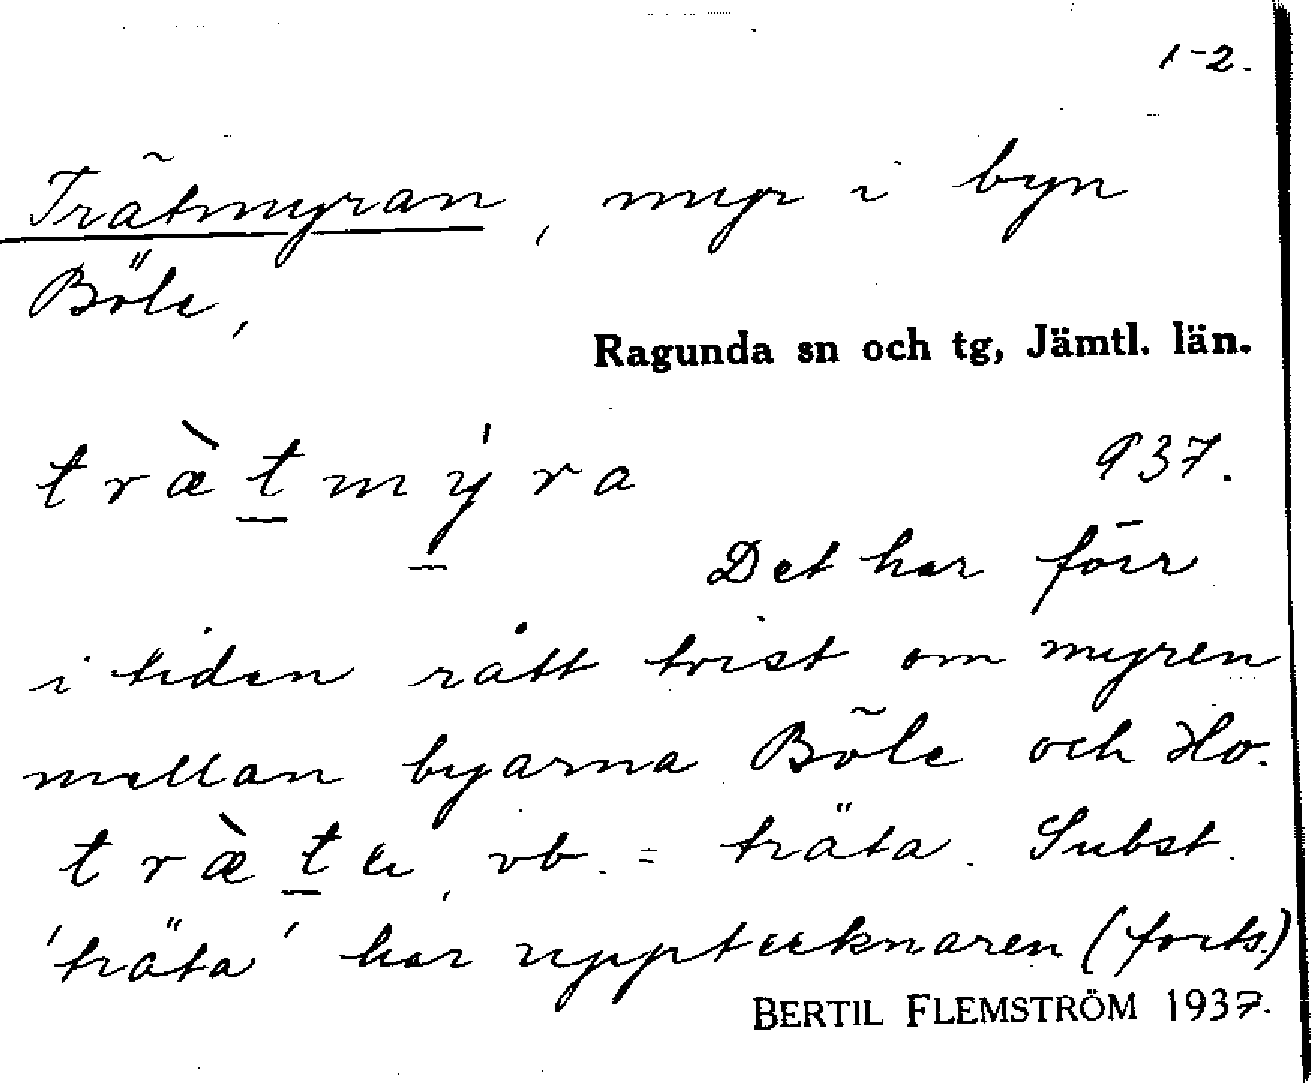 1-2.
Trätmyran, myr i byn
Böle,
Ragunda sn och tg, Jämtl. län.
træ̀tmýra 937.
Det har förr
i tiden rått tvist om myren
mellan byarna Böle och Ho.
træ̀ta, vb. = träta. Subst.
'träta' har upptecknaren (forts.)
BERTIL FLEMSTRÖM 1937.